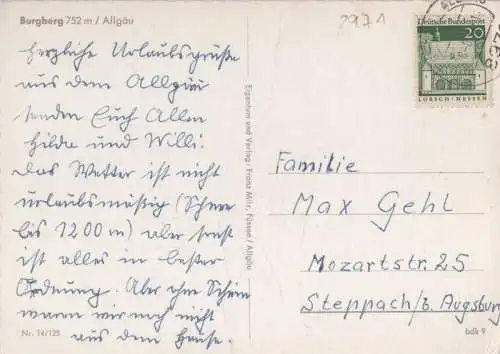 Burgberg 752 m / Allgäu
2971
Deutsche Bundespost
20
LORSCH / HESSEN
Herzliche Urlaubsgrüße
aus dem Allgäu
senden Euch Allen
Hilda und Willi.
Das Wetter ist nicht
urlaubsmäßig (Schnee
bis 1200 m) aber sonst
ist alles in bester
Ordnung. Aber ohne Schirm
waren wir noch nicht
aus dem Hause.
Eigentum und Verlag: Franz Milz, Füssen / Allgäu
Familie
Max Gehl
Mozartstr. 25
Steppach / b. Augsburg
Nr. 14/125
bdk 9